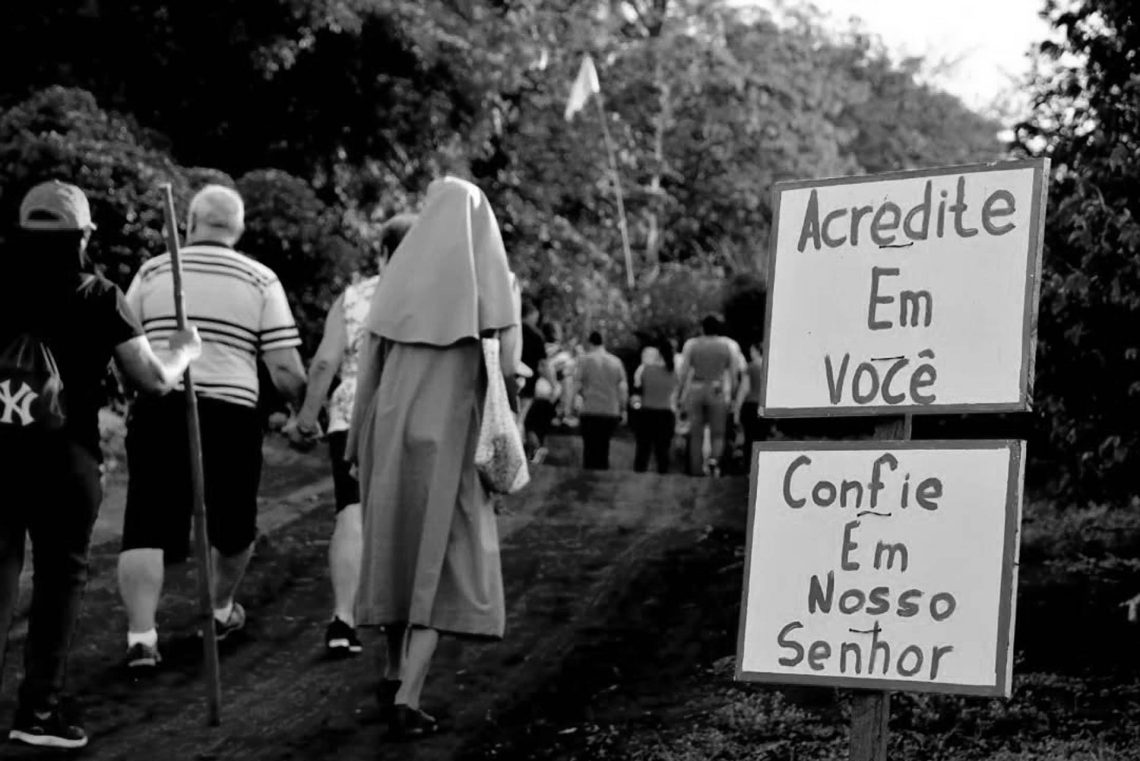 NY
Acredite
Em
Você
Confie
Em
Nosso
Senhor